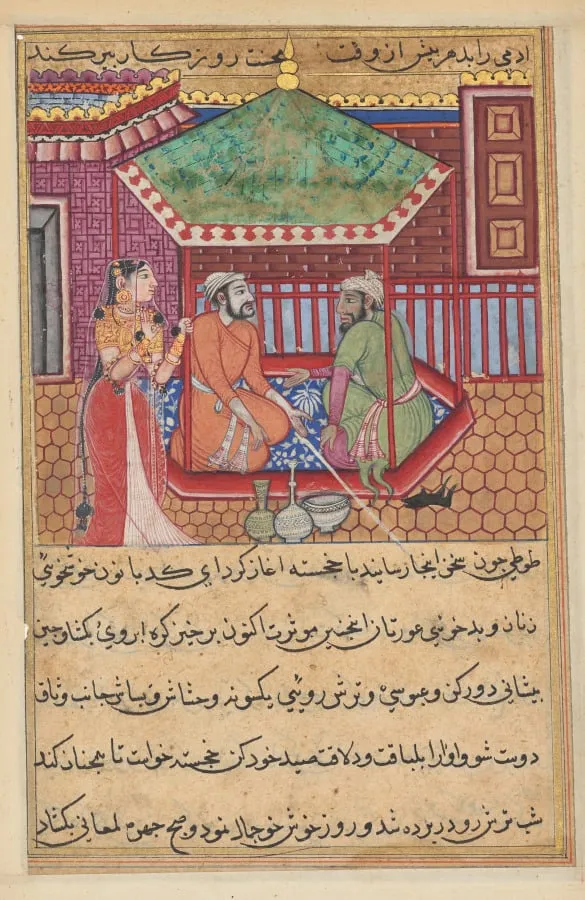 ادمی را بدهر پیش از وقت محنت روزگار پیر کند
طوطی چون سخن اینجا رسانید با خجسته اغاز کرد ای کدبانو خوشخوئی
زنان و بدخوئی عورتان اینچنین موثرست اکنون برخیز کره ابروی بکشا و چین
پیشانی دور کن و عبوسی و ترش روئی یکسو نه و جانب وثاق
دوست شو و او را بلباقت و دلاقت صید خود کن خجسته خواست تا همچنان کند
شب ترش رو در پرده شد و روز خوش خو جمال نمود و صبح چهره لمعانی بکشاد